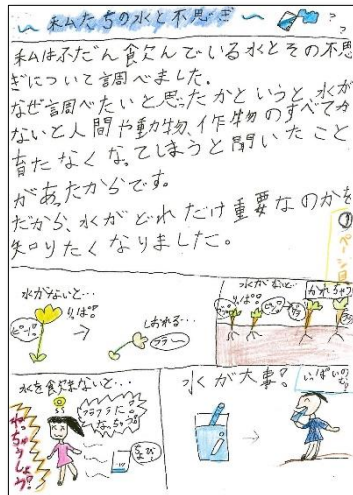 私たちの水と不思ぎ
私はふだん飲んでいる水とその不思
ぎについて調べました。
なぜ調べたいと思ったかというと、水が
ないと人間や動物、作物のすべてが
育たなくなってしまうと聞いたこと
があったからです。
だから、水がどれだけ重要なのかを
知りたくなりました。
①ページ目
水がないと…
りっぱ!
ピン!
しおれる…
フラ〜
水がないと…
りっぱ!
かれちゃう
水を飲まないと…
フラフラに
なっちゃう。
水が大事?
いっぱいのむ